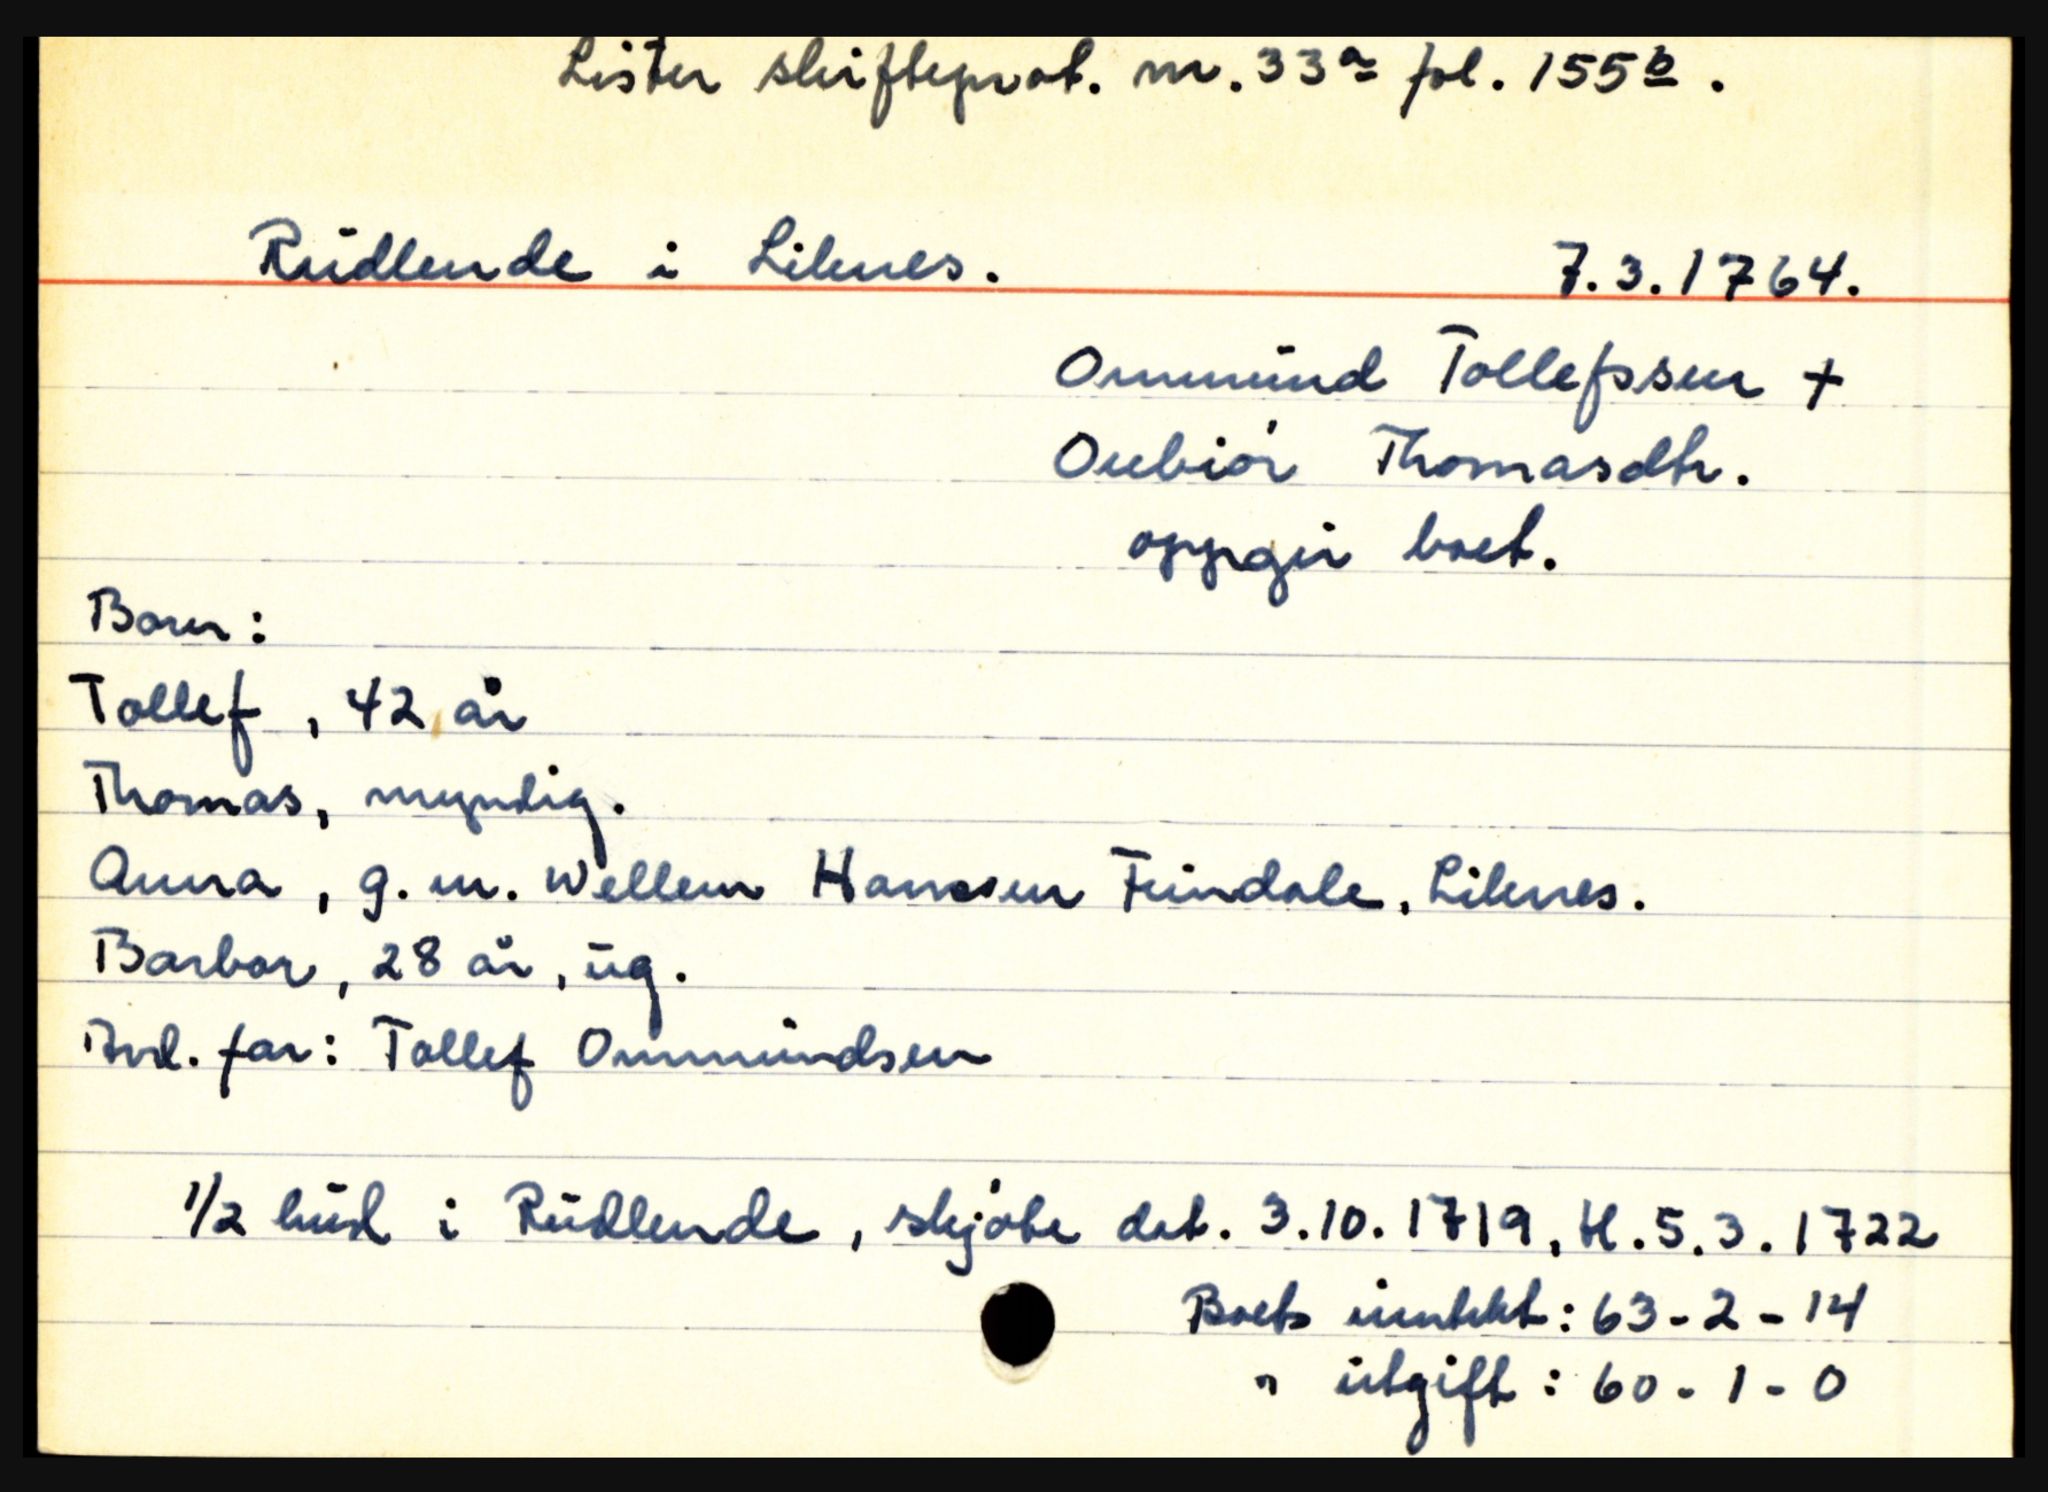 Lister skifteprot. nr. 33a fol. 155b.
Rudlende i Liknes. 7.3.1764.
Ommund Tollefssen +
Oebiør Thomasdtr.
oppgir boet.
Barn:
Tollef, 42 år
Thomas, myndig.
Anna, g. m. Wellem Hanssen Fundale, Liknes.
Barbor, 28 år, ug.
Avd. far: Tollef Ommundsen
1/2 hud i Rudlende, skjøte dat. 3.10.1719, tl. 5.3.1722
Boets inntekt: 63-2-14
" utgift: 60-1-0